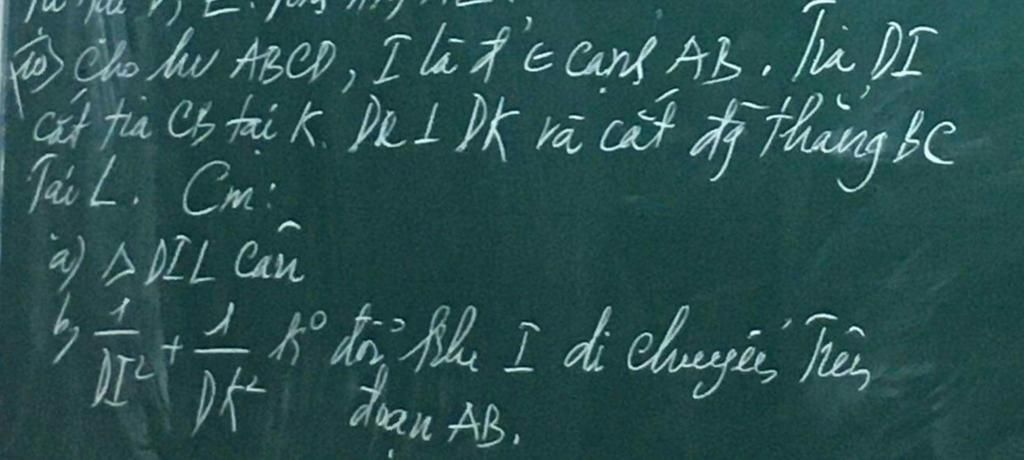 10) Cho hv ABCD, I là đ' ∈ cạnh AB. Tia DI
cắt tia CB tại K. Dx ⊥ DK và cắt đg thẳng BC
Tại L. Cm:
a) Δ DIL cân
b, 1/DI² + 1/DK² k⁰ đổi khi I di chuyển Trên
đoạn AB.